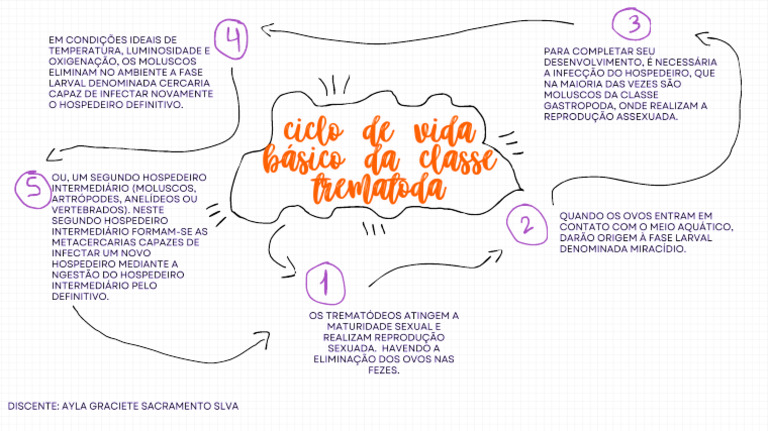 ciclo de vida
básico da classe
trematoda
1
OS TREMATÓDEOS ATINGEM A
MATURIDADE SEXUAL E
REALIZAM REPRODUÇÃO
SEXUADA. HAVENDO A
ELIMINAÇÃO DOS OVOS NAS
FEZES.
2
QUANDO OS OVOS ENTRAM EM
CONTATO COM O MEIO AQUÁTICO,
DARÃO ORIGEM À FASE LARVAL
DENOMINADA MIRACÍDIO.
3
PARA COMPLETAR SEU
DESENVOLVIMENTO, É NECESSÁRIA
A INFECÇÃO DO HOSPEDEIRO, QUE
NA MAIORIA DAS VEZES SÃO
MOLUSCOS DA CLASSE
GASTROPODA, ONDE REALIZAM A
REPRODUÇÃO ASSEXUADA.
4
EM CONDIÇÕES IDEAIS DE
TEMPERATURA, LUMINOSIDADE E
OXIGENAÇÃO, OS MOLUSCOS
ELIMINAM NO AMBIENTE A FASE
LARVAL DENOMINADA CERCARIA
CAPAZ DE INFECTAR NOVAMENTE
O HOSPEDEIRO DEFINITIVO.
5
OU, UM SEGUNDO HOSPEDEIRO
INTERMEDIÁRIO (MOLUSCOS,
ARTRÓPODES, ANELÍDEOS OU
VERTEBRADOS). NESTE
SEGUNDO HOSPEDEIRO
INTERMEDIÁRIO FORMAM-SE AS
METACERCARIAS CAPAZES DE
INFECTAR UM NOVO
HOSPEDEIRO MEDIANTE A
NGESTÃO DO HOSPEDEIRO
INTERMEDIÁRIO PELO
DEFINITIVO.
DISCENTE: AYLA GRACIETE SACRAMENTO SLVA